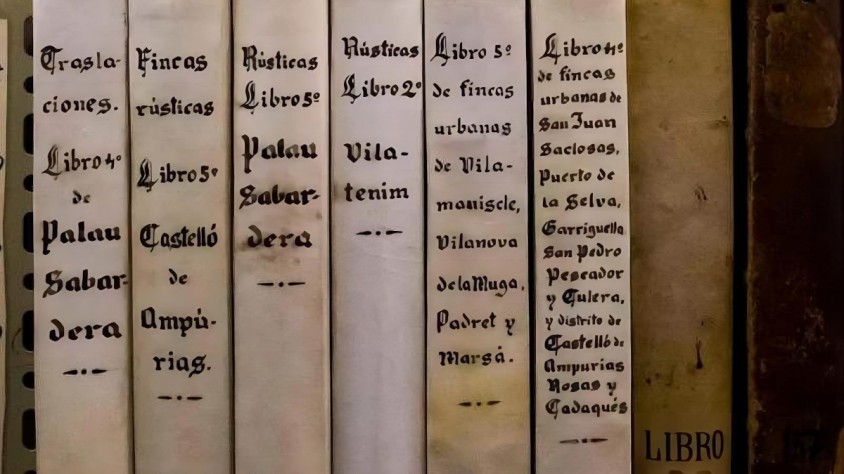 Trasla-
ciones.
Libro 4º
de
Palau
Sabar-
dera
Fincas
rústicas
Libro 5º
Castelló
de
Ampú-
rias.
Rústicas
Libro 5º
Palau
Sabar-
dera
Rústicas
Libro 2º
Vila-
tenim
Libro 5º
de fincas
urbanas
de Vila-
maniscle,
Vilanova
de la Muga,
Padret y
Marsá.
Libro 4º
de fincas
urbanas de
San Juan
Saclosas,
Puerto de
la Selva,
Garriguella
San Pedro
Pescador
y Culera,
y distrito de
Castelló de
Ampurias
Rosas y
Cadaqués
LIBRO